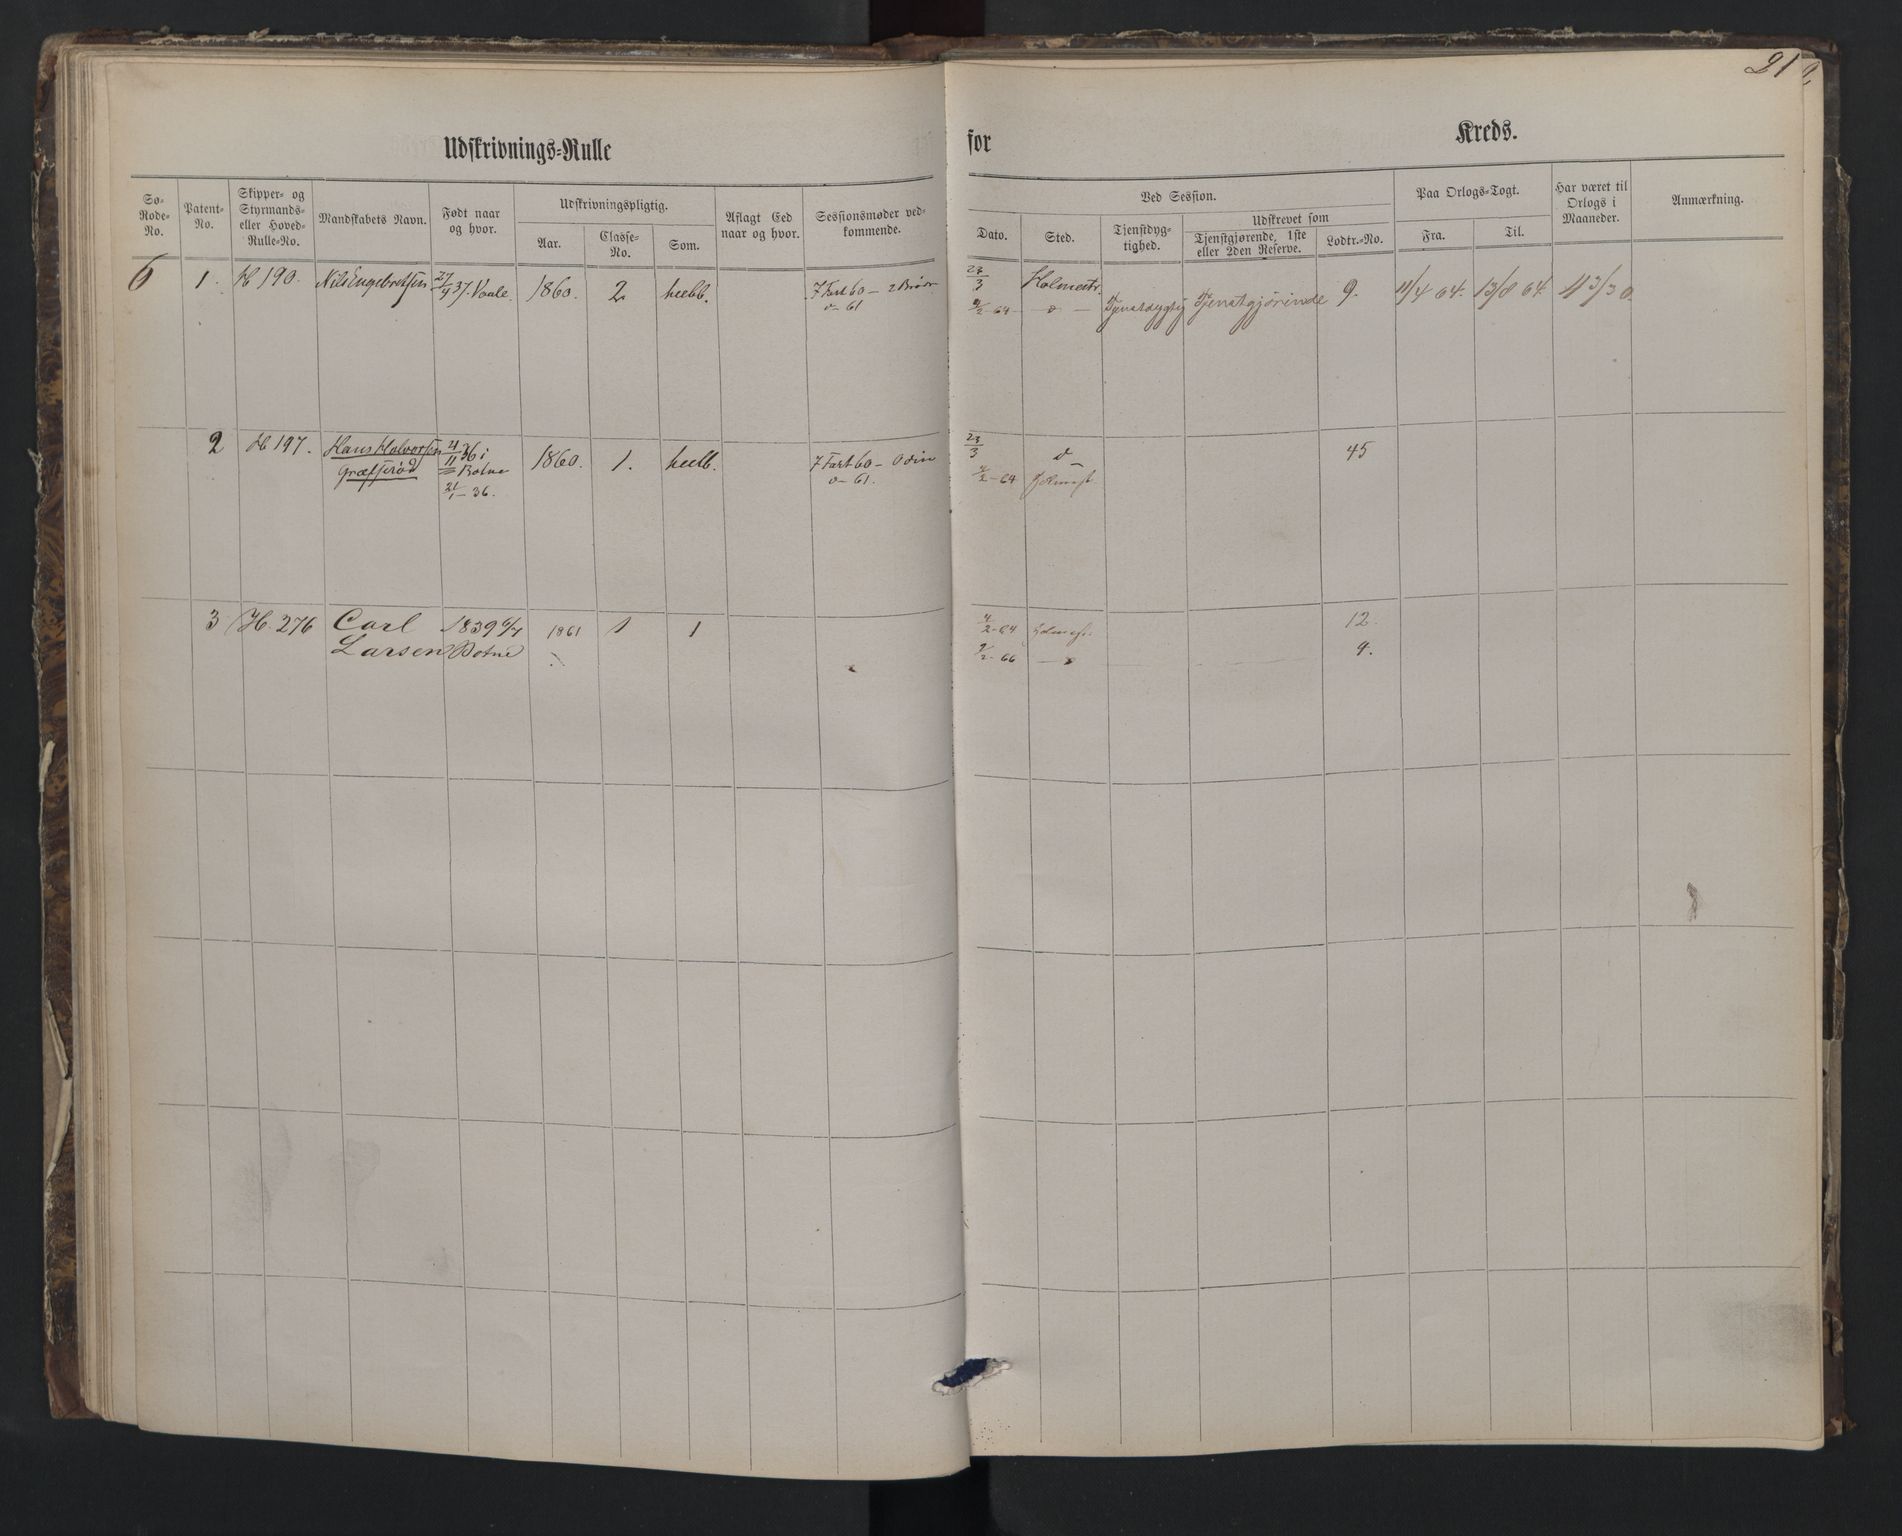 21
Udskrivnings-Rulle for Kreds.
Sø-Rode-No. Patent-No. Skipper- og Styrmands- eller Hoved-Rulle-No. Mandskabets Navn. Født naar og hvor. Udskrivningspligtig. Aar. Classe-No. Som. Aflagt Eed naar og hvor. Sessionsmøder vedkommende.
Ved Session. Dato. Sted. Tjenstdygtighed. Udskrevet som Tjenstgjørende, 1ste eller 2den Reserve. Lodtr.-No. Paa Orlogs-Togt. Fra. Til. Har været til Orlogs i Maaneder. Anmærkning.
6 1. H 190. Nils Engebretsen 27/9 37. Vaale. 1860. 2 heelb. 7 Fart 60 — 2 Brødr 23/3 Holmestr. 9. 11/4 64. 13/8 64.
o— 61 9/2-64 — o — Tjenstdygtig Tjenstgjørende
2 H 197. Hans Halvorsen 21/11 36 i 1860. 1. heelb. 7 Fart 60 — Odin 23/3 o 45
Græfserød Botne o— 61. 9/2-64
21/1-36.
3 H. 276 Carl 1839 1861 1 1 9/2-64 12.
Larsen Botne 9/2-66 — o 4.